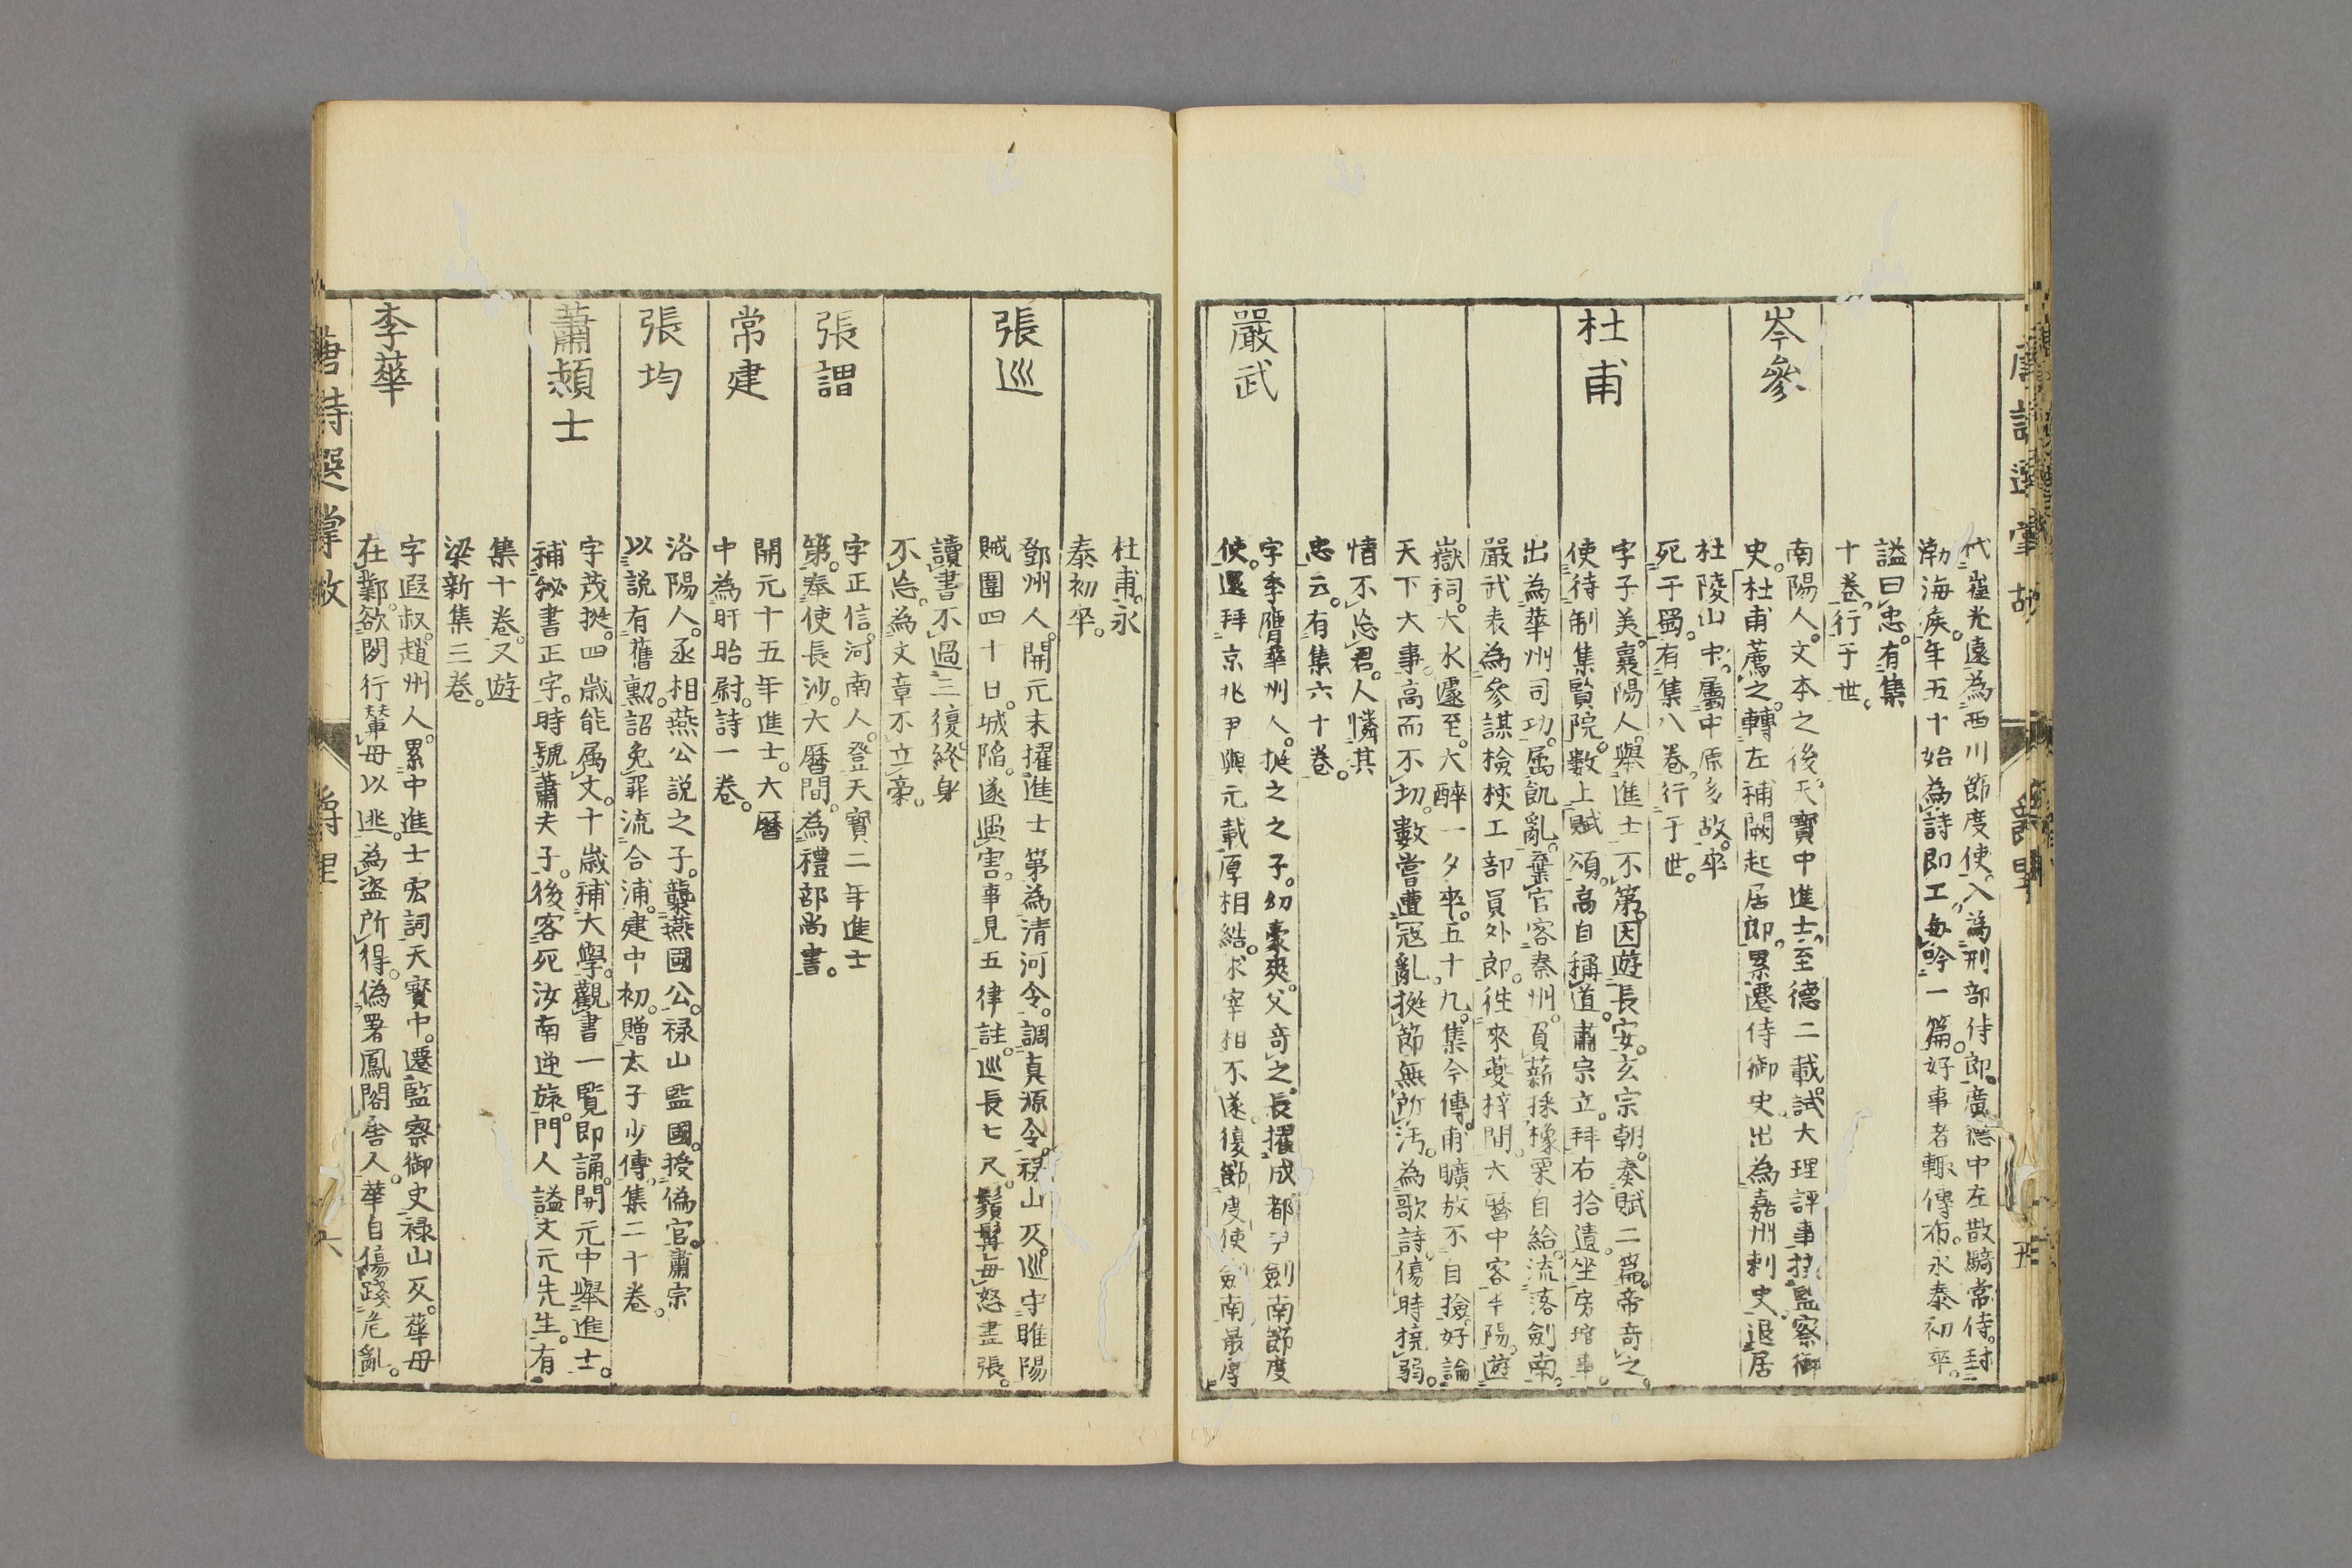 代崔光遠為西川節度使。入為刑部侍郎。廣德中左散騎常侍。封
渤海侯。年五十始為詩即工。每吟一篇。好事者輙傳布。永泰初卒。
謚曰忠。有集
十卷。行于世。
岑參
南陽人。文本之後。天寶中進士。至德二載。試大理評事。攝監察御
史。杜甫薦之。轉左補闕起居郎。累遷侍御史。出為嘉州刺史。退居
杜陵山中。屬中原多故。卒
死于蜀。有集八卷。行于世。
杜甫
字子美。襄陽人。舉進士不第。因遊長安。玄宗朝。奏賦二篇。帝奇之。
使待制集賢院。數上賦頌。高自稱道。肅宗立。拜右拾遺。坐房琯事。
出為華州司功。屬飢亂。棄官客秦州。負薪採橡栗自給。流落劍南。
嚴武表為參謀檢校工部員外郎。往來夔梓間。大曆中客耒陽。遊
嶽祠。大水遽至。大醉一夕卒。五十九。集今傳。甫曠放不自撿。好論
天下大事。高而不切。數嘗遭寇亂。挺節無所汚。為歌詩。傷時撓弱。
情不忘君。人憐其
忠云。有集六十卷。
嚴武
字季鷹。華州人。挺之之子。幼豪爽。父奇之。長擢成都尹劍南節度
使。還拜京兆尹。與元載厚相結。求宰相不遂。復節度使劍南。最厚
杜甫。永
泰初卒。
張巡
鄧州人。開元末擢進士第。為清河令。調真源令。祿山反。巡守睢陽
賊圍四十日。城陥。遂遇害。事見五律註。巡長七尺。鬚髯每怒盡張。
讀書不過三復。終身
不忘。為文章不立稾。
張謂
字正信。河南人。登天寶二年進士
第。奉使長沙。大曆間。為禮部尚書。
常建
開元十五年進士。大曆
中為盱眙尉。詩一卷。
張均
洛陽人。丞相燕公説之子。襲燕國公。祿山監國。授偽官。肅宗
以説有舊勲。詔免罪流合浦。建中初。贈太子少傅。集二十卷。
蕭穎士
字茂挺。四歳能属文。十歳補大學。觀書一覽即誦。開元中舉進士。
補秘書正字。時號蕭夫子。後客死汝南逆旅。門人謚文元先生。有
集十卷。又遊
梁新集三卷。
李華
字遐叔。趙州人。累中進士宏詞。天寶中。遷監察御史。祿山反。華母
在鄴。欲間行輦母以逃。為盗所得。偽署鳳閣舎人。華自傷踐危亂。
唐詩選掌故
爵里
六